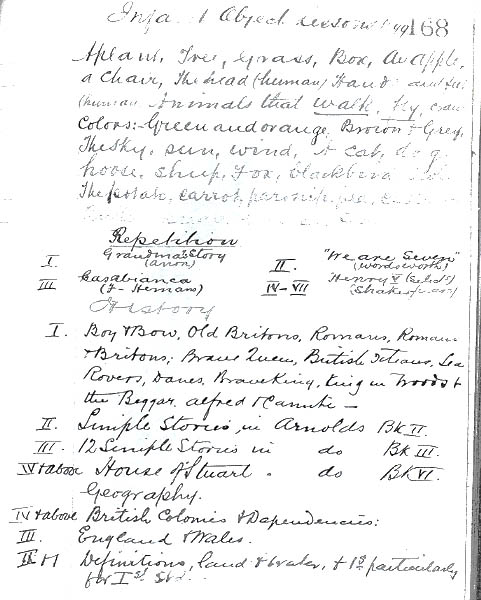 Infant Object Lessons 1899 168
A plant, Tree, Grass, Box, An Apple,
a Chair, The head (human) Hand and feet
(human Animals that walk, fly, craw
Colors:- Green and orange, Brown & Grey,
The sky, sun, wind, A cat, dog,
horse, sheep, Fox, blackbird
The potato, carrot, parsnip, pea,
Repetition
I. Grandma's Story II. "We are Seven"
(anon) (Wordsworth)
III Casabianca IV-VII Henry V (Sel'ds)
(F- Hemans) (Shakespeare)
History
I. Boy & Bow, Old Britons, Romans, Romans
& Britons; Brave Queen, British, Sea
Rovers, Danes, Brave King, King in Woods &
the Beggar, Alfred & Canute -
II. Simple Stories, in Arnolds Bk II.
III. 12 Simple Stories in do Bk III.
IV & above House of Stuart . do Bk VI.
Geography.
IV & above British Colonies & Dependencies:
III. England & Wales.
II & I Definitions, land & water, & 1st particularly
for Ist Std.